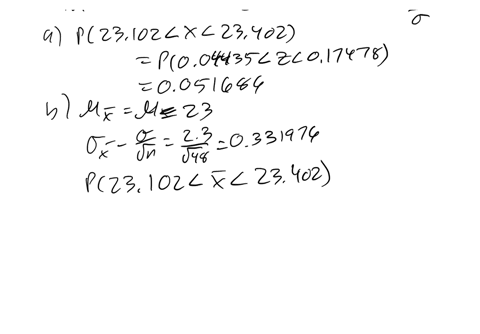 σ
a) P(23.102 < x < 23.402)
= P(0.04435 < z < 0.17478)
= 0.051684
b) μx̄ = μ = 23
σx̄ = σ/√n = 2.3/√48 = 0.331976
P(23.102 < x̄ < 23.402)